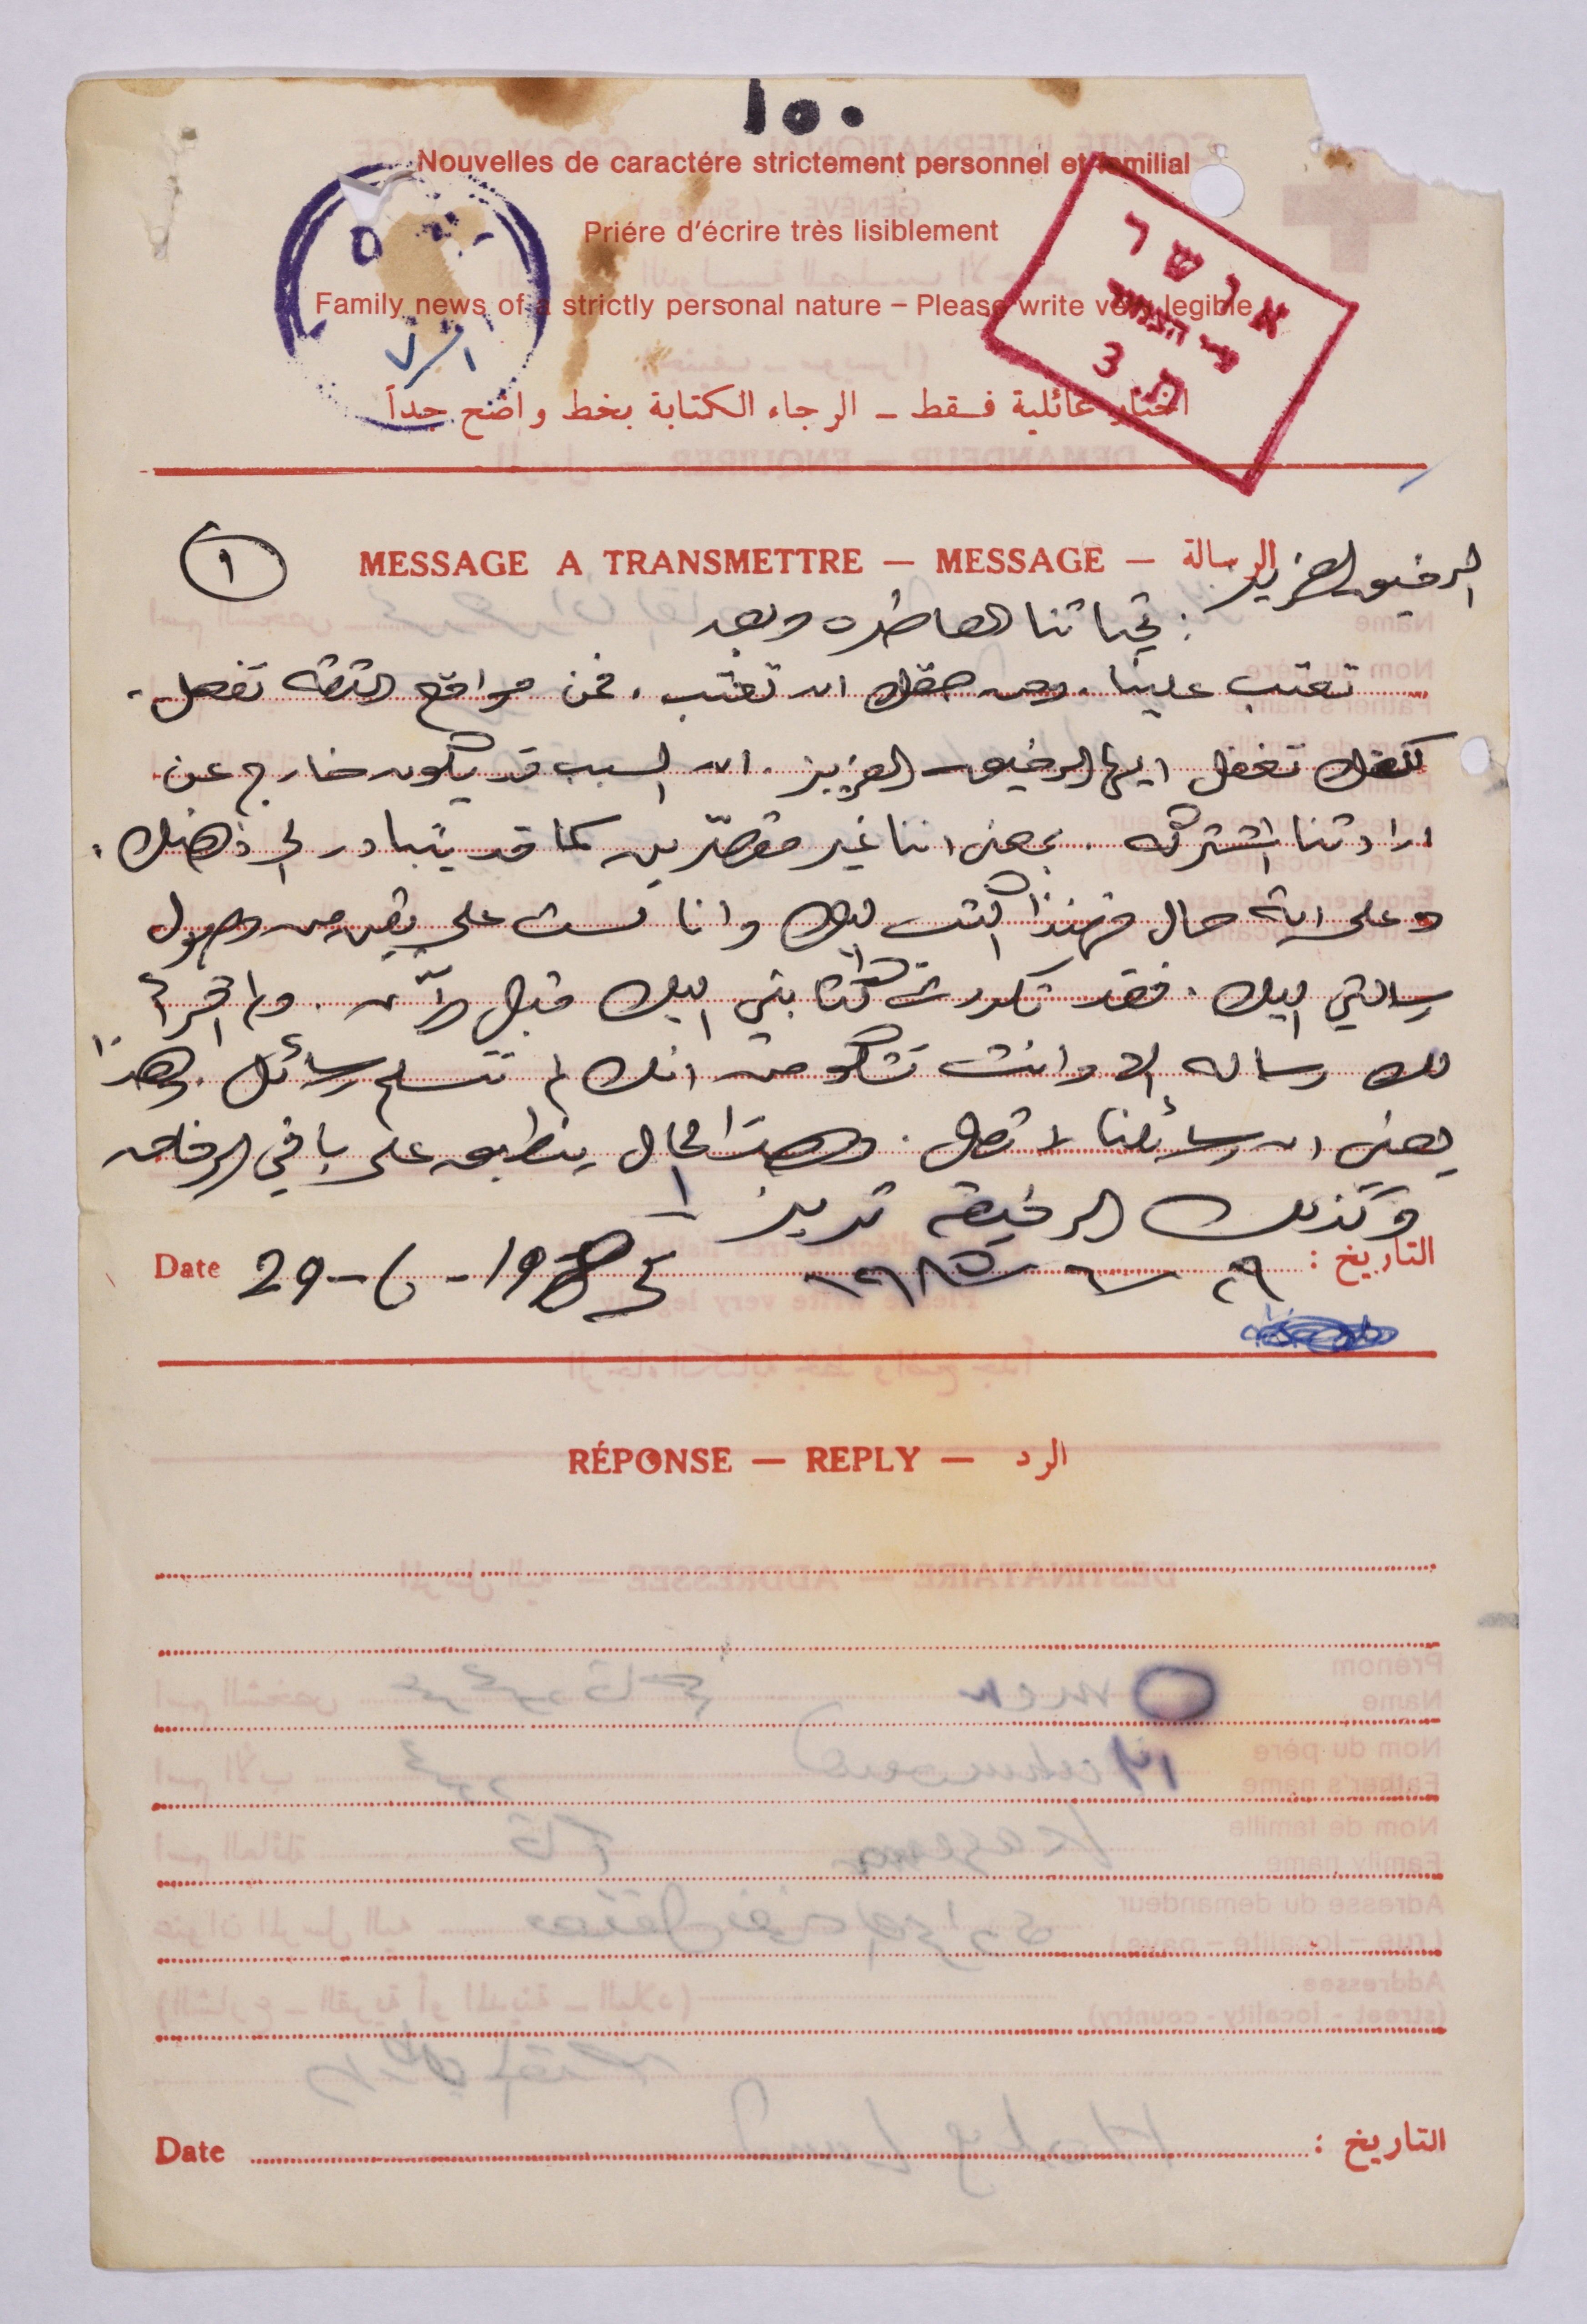 ١٥٠
Nouvelles de caractére strictement personnel et familial
Priére d'écrire très lisiblement
Family news of a strictly personal nature – Please write very legible
اخبار عائلية فـقط – الرجاء الكتابة بخط واضح جداً
אושר
ת. 3
٧/١
MESSAGE A TRANSMETTRE — MESSAGE — الرسالة
١
الرفيق العزيز
تحياتنا العاطره وبعد :
تعتب علينا. ومن حقك ان تعتب. فمن مواقع الثقة تفعل.
لكنك تغفل ايها الرفيق العزيز. ان السبب قد يكون خارج عن
ارادتنا المشتركه. بمعنى اننا غير مقصّرين كما قد يتبادر الى ذهنك.
وعلى اية حال فهنذا اكتب اليك وانا لست على يقين من وصول
رسالتي اليك. فقد تكررت كتابتي اليك قبل الآن. ولم اقرأ
لك رساله الا وانت تشكو من انك لم تتسلم رسائل. وهذا
يعني ان رسائلنا لا تصل. وهذا الحال ينطبق على باقي الرفاق
وكذلك الرفيقة تريز
التاريخ : ٢٩ – ٦ – ١٩٨٥
Date 29-6-1985
RÉPONSE — REPLY — الرد
Date
التاريخ :